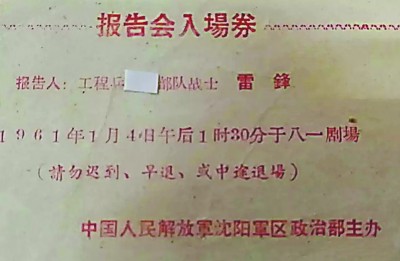 报告会入場券
报告人：工程兵 部队战士 雷鋒
1961年1月4日午后1时30分于八一剧場
（請勿迟到、早退、或中途退場）
中国人民解放軍沈阳軍区政治部主办